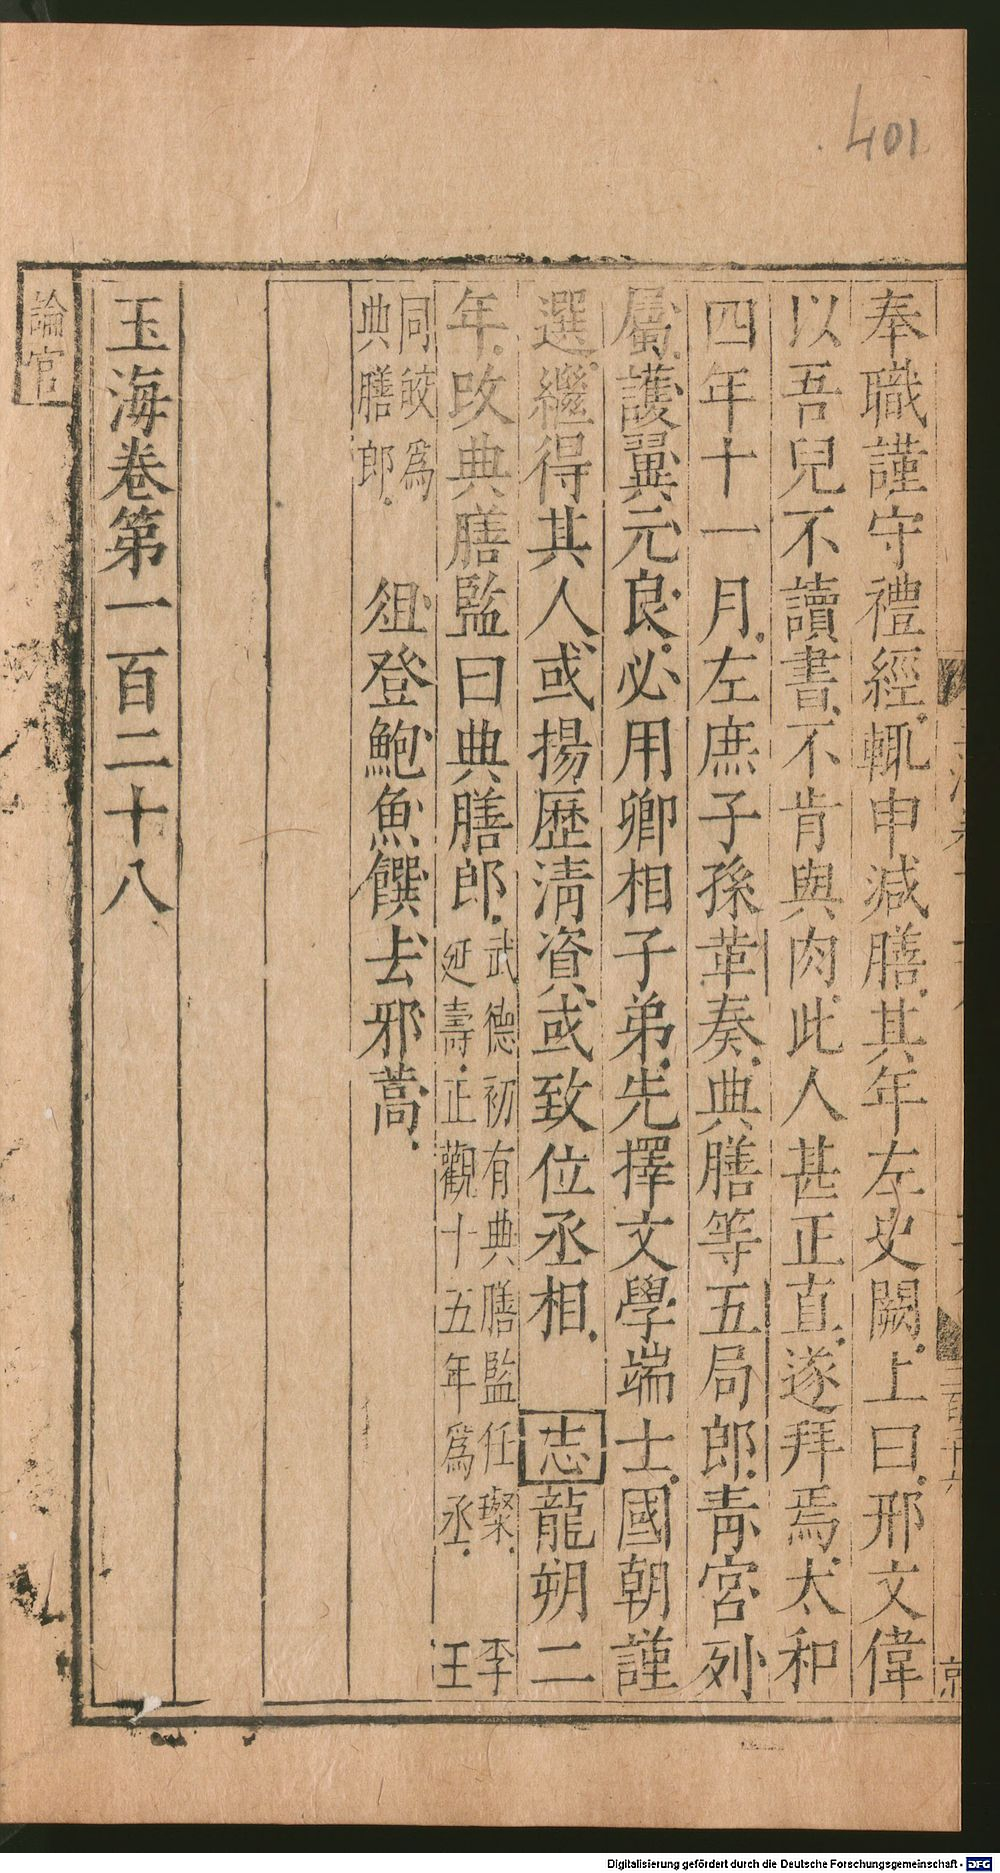 401
奉職謹守禮經輒申減膳其年左史闕上曰邢文偉
以吾兒不讀書不肯與肉此人甚正直遂拜焉太和
四年十一月左庶子孫革奏典膳等五局郎青宮列
屬護翼元良必用卿相子弟先擇文學端士國朝謹
選繼得其人或揚歷清資或致位丞相 志龍朔二
年改典膳監曰典膳郎武德初有典膳監任璨 李
延壽正觀十五年為丞 王
同皎為
典膳郎 俎登鮑魚饌去邪蒿
玉海卷第一百二十八
論官
Digitalisierung gefördert durch die Deutsche Forschungsgemeinschaft - DFG